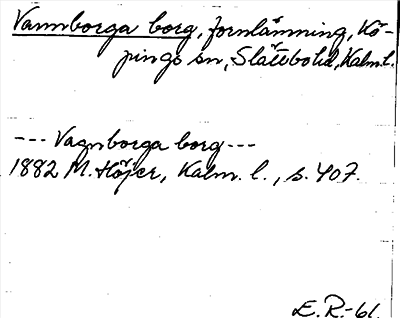 Vannborga borg, fornlämning, Kö-
pings sn, Slättbo hd, Kalm. l.
--- Vagnborga borg ---
1882 M. Höjer, Kalm. l., s. 407.
E. R. -61.